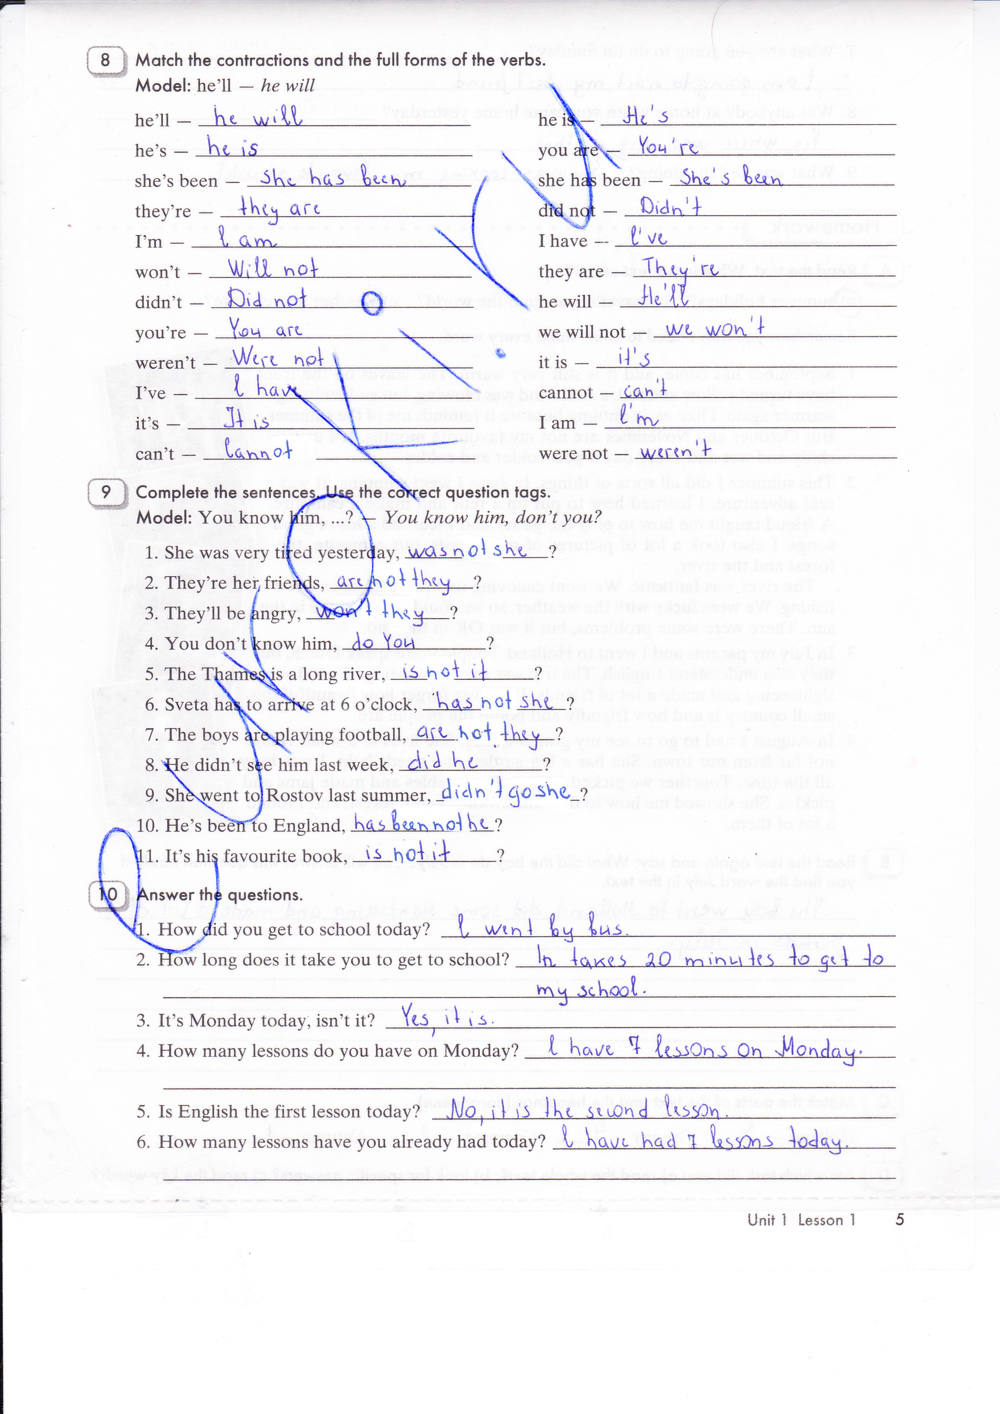 8 Match the contractions and the full forms of the verbs.
Model: he'll — he will
he'll — he will
he's — he is
she's been — She has been
they're — they are
I'm — I am
won't — Will not
didn't — Did not
you're — You are
weren't — Were not
I've — I have
it's — It is
can't — Cannot
he is — He's
you are — You're
she has been — She's been
did not — Didn't
I have — I've
they are — They're
he will — He'll
we will not — we won't
it is — it's
cannot — can't
I am — I'm
were not — weren't
9 Complete the sentences. Use the correct question tags.
Model: You know him, ...? — You know him, don't you?
1. She was very tired yesterday, was not she?
2. They're her friends, are not they?
3. They'll be angry, won't they?
4. You don't know him, do You?
5. The Thames is a long river, is not it?
6. Sveta has to arrive at 6 o'clock, has not she?
7. The boys are playing football, are not they?
8. He didn't see him last week, did he?
9. She went to Rostov last summer, didn't go she?
10. He's been to England, has been not he?
11. It's his favourite book, is not it?
10 Answer the questions.
1. How did you get to school today? I went by bus.
2. How long does it take you to get to school? In takes 20 minutes to get to
my school.
3. It's Monday today, isn't it? Yes, it is.
4. How many lessons do you have on Monday? I have 7 lessons on Monday.
5. Is English the first lesson today? No, it is the second lesson.
6. How many lessons have you already had today? I have had 7 lessons today.
Unit 1 Lesson 1 5